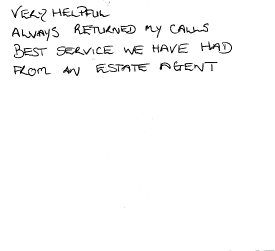 VERY HELPFUL
ALWAYS RETURNED MY CALLS
BEST SERVICE WE HAVE HAD
FROM AN ESTATE AGENT